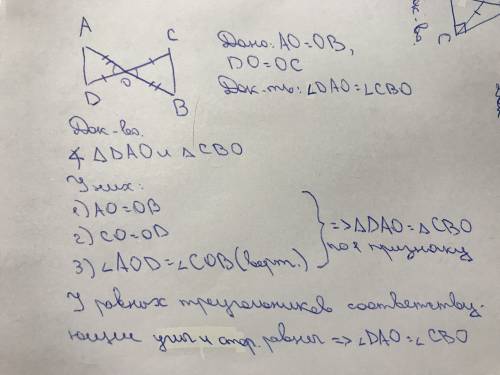 A
C
O
D
B
Дано: AO=OB,
DO=OC
Док-ть: ∠DAO=∠CBO
Док-во.
∢ △DAO и △CBO
У них:
1) AO=OB
2) CO=OD
3) ∠AOD=∠COB (верт.)
=> △DAO=△CBO
по 1 признаку
У равных треугольников соответству-
ющие углы и стор. равны => ∠DAO=∠CBO